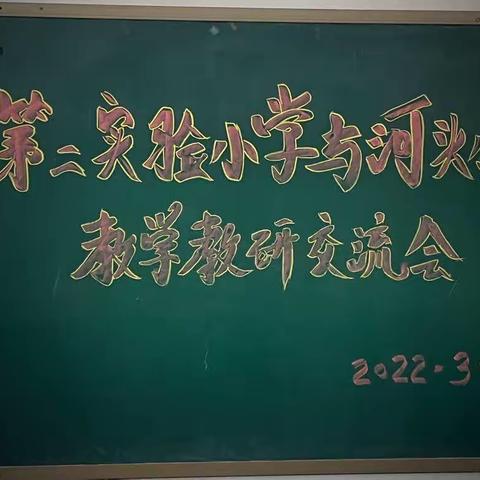 第二实验小学与河头
教学教研交流会
2022.3